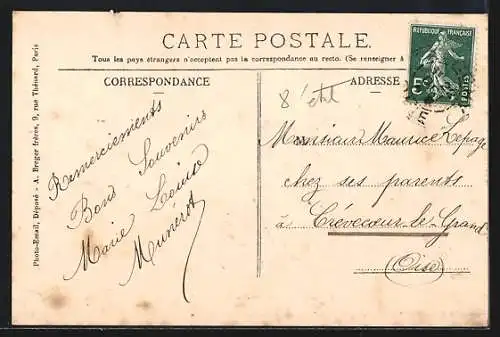 CARTE POSTALE.
Tous les pays étrangers n'acceptent pas la correspondance au recto. (Se renseigner à
CORRESPONDANCE
ADRESSE
REPUBLIQUE FRANÇAISE
5c
POSTES
Photo-Email, Déposé - A. Breger frères, 9, rue Thénard, Paris
Remerciements
Bons Souvenirs
Marie
Munérot
Monsieur Maurice Lepage
chez ses parents
à Crèvecœur-le-Grand
(Oise)